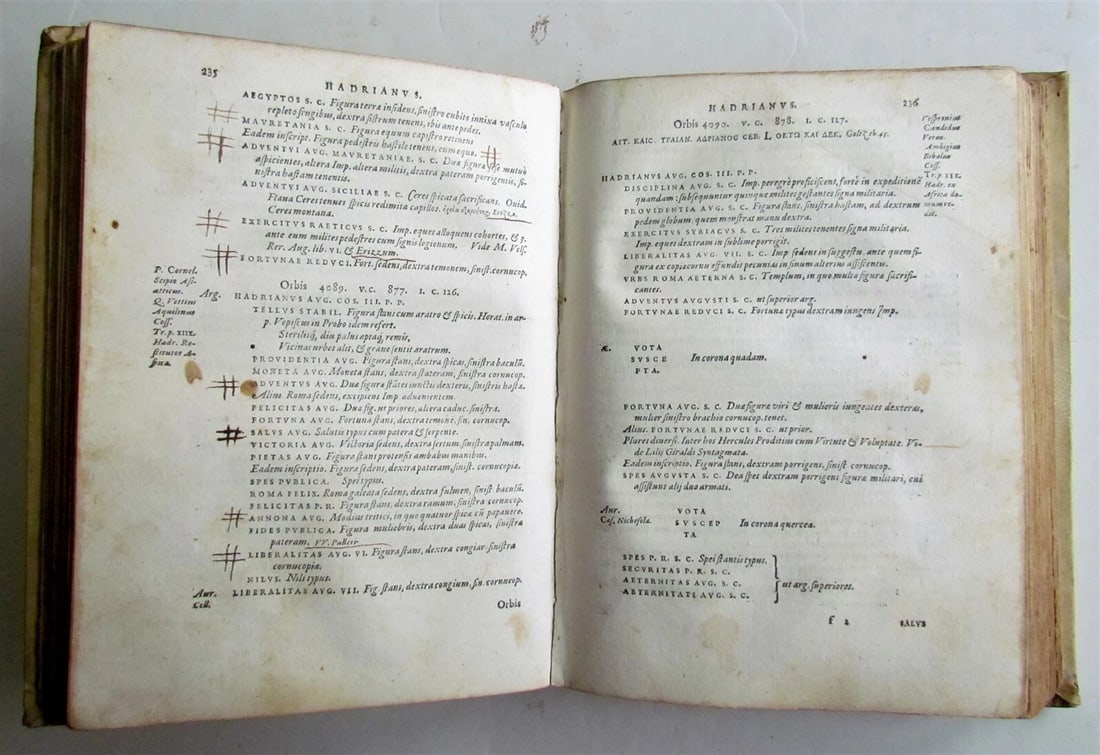 235
HADRIANVS.
AEGYPTOS S. C. Figura terræ insidens, sinistro cubito innixa vasculo
repleto frugibus, dextra sistrum tenens, ibis ante pedes.
MAVRETANIA S. C. Figura equum capistro retinens
Eadem inscript. Figura pedestris hastile tenens, cum equo.
ADVENTVI AVG. MAVRETANIAE. S. C. Duæ figuræ se mutuò
aspicientes, altera Imp. altera militis, dextra pateram porrigentis, si-
nistra hastam tenentis.
ADVENTVI AVG. SICILIAE S. C. Ceres spicata sacrificans. Ouid.
Flaua Ceres tenues spicis redimita capillos.
Ceres montana.
EXERCITVS RAETICVS S. C. Imp. eques alloquens cohortes, & 3.
ante eum milites pedestres cum signis legionum. Vide M. Vels.
Rer. Aug. lib. VI. & Erizzum.
FORTVNAE REDVCI. Fort. sedens, dextra temonem, sinist. cornucop.
P. Cornel.
Scipio Asi-
aticus.
Q. Vettius
Aquilinus
Coss.
Tr. p. XIX.
Hadr. Re-
stitutor A-
Orbis 4089. V.C. 877. I. C. 126.
Arg. HADRIANVS AVG. COS. III. P. P.
TELLVS STABIL. Figura stans cum aratro & spicis. Horat. in ar-
p. Vopiscus in Probo idem refert.
Sterilisq́, diu palus aptaq́, remis,
Vicinas urbes alit, & graue sentit aratrum.
PROVIDENTIA AVG. Figura stans, dextra pateram, sinistra baculũ.
MONETA AVG. Moneta stans, dextra stateram, sinist. cornucop.
ADVENTVS AVG. Duæ figuræ stãtes iunctis dexteris, sinistris hasta.
Alius. Roma sedens, excipiens Imp. aduenientem.
FELICITAS AVG. Duæ fig. ut priores, altera caduc. sinistra.
FORTVNA AVG. Fortuna stans, dextra temone, sin. cornucop.
SALVS AVG. Salutis typus cum patera & serpente.
VICTORIA AVG. Victoria sedens, dextra sertum, sinistra palmam.
PIETAS AVG. Figura stans protensis ambabus manibus.
Eadem inscriptio. Figura sedens, dextra pateram, sinist. cornucopiæ.
SPES PVBLICA. Spei typus.
ROMA FELIX. Roma galeata sedens, dextra fulmen, sinist. baculũ.
FELICITAS P. R. Figura stans, dextra ramum, sinistra cornucop.
ANNONA AVG. Modius tritici, in quo quatuor spicæ cũ papauere.
FIDES PVBLICA. Figura muliebris, dextra duas spicas, sinistra
pateram.
LIBERALITAS AVG. VI. Figura stans, dextra congiar. sinistra
cornucopiæ.
NILVS. Nili typus.
Aur. LIBERALITAS AVG. VII. Fig. stans, dextra congium, sin. cornucop.
Cell.
Orbis
HADRIANVS. 236
Orbis 4090. V. C. 878. I. C. 127.
ΑΥΤ. ΚΑΙC. ΤΡΑΙΑΝ. ΑΔΡΙΑΝΟC CEB. L ΟΚΤΩ ΚΑΙ ΔΕΚ. Goltz. ph. 45.
Candidus
Verus.
Ambigius
Bibulus
Coss.
Tr. p. XIX.
Hadr. ex
Africa do-
mum re-
HADRIANVS AVG. COS. III. P. P.
DISCIPLINA AVG. S. C. Imp. peregrè proficiscens, fortè in expeditionẽ
quandam: subsequuntur quinque milites gestantes signa militaria.
PROVIDENTIA AVG. S. C. Figura stans, sinistra hastam, ad dextrum
pedem globum, quem monstrat manu dextra.
EXERCITVS SYRIACVS S. C. Tres milites tenentes signa militaria.
Imp. eques dextram in sublime porrigit.
LIBERALITAS AVG. VII. S. C. Imp. sedens in suggestu, ante quem fi-
gura ex copiæ cornu effundit pecunias in sinum alterius assistentis.
VRBS ROMA AETERNA S. C. Templum, in quo multæ figuræ sacrifi-
cantes.
ADVENTVS AVGVSTI S. C. ut superior arg.
FORTVNAE REDVCI S. C. Fortuna typus dextram iungens Imp.
Æ. VOTA
SVSCE In corona quadam.
PTA.
FORTVNA AVG. S. C. Duæ figuræ viri & mulieris iungentes dexteras,
mulier sinistro brachio cornucop. tenet.
Alius. FORTVNAE REDVCI S. C. ut prior.
Plures diuersi. Inter hos Hercules Prodicius cum Virtute & Voluptate. Vi-
de Lilij Giraldi Syntagmata.
Eadem inscriptio. Figura stans, dextram porrigens, sinist. cornucop.
SPES AVGVSTA S. C. Dea spes dextram porrigens figuræ militari, cui
assistunt alij duo armati.
Aur. VOTA
Cæs. Nichesola. SVSCEP In corona quercea.
TA
SPES P. R. S. C. Spei stantis typus.
SECVRITAS P. R. S. C.
AETERNITAS AVG. S. C. ut arg. superiores.
AETERNITATI AVG. S. C.
f 2 SALVS